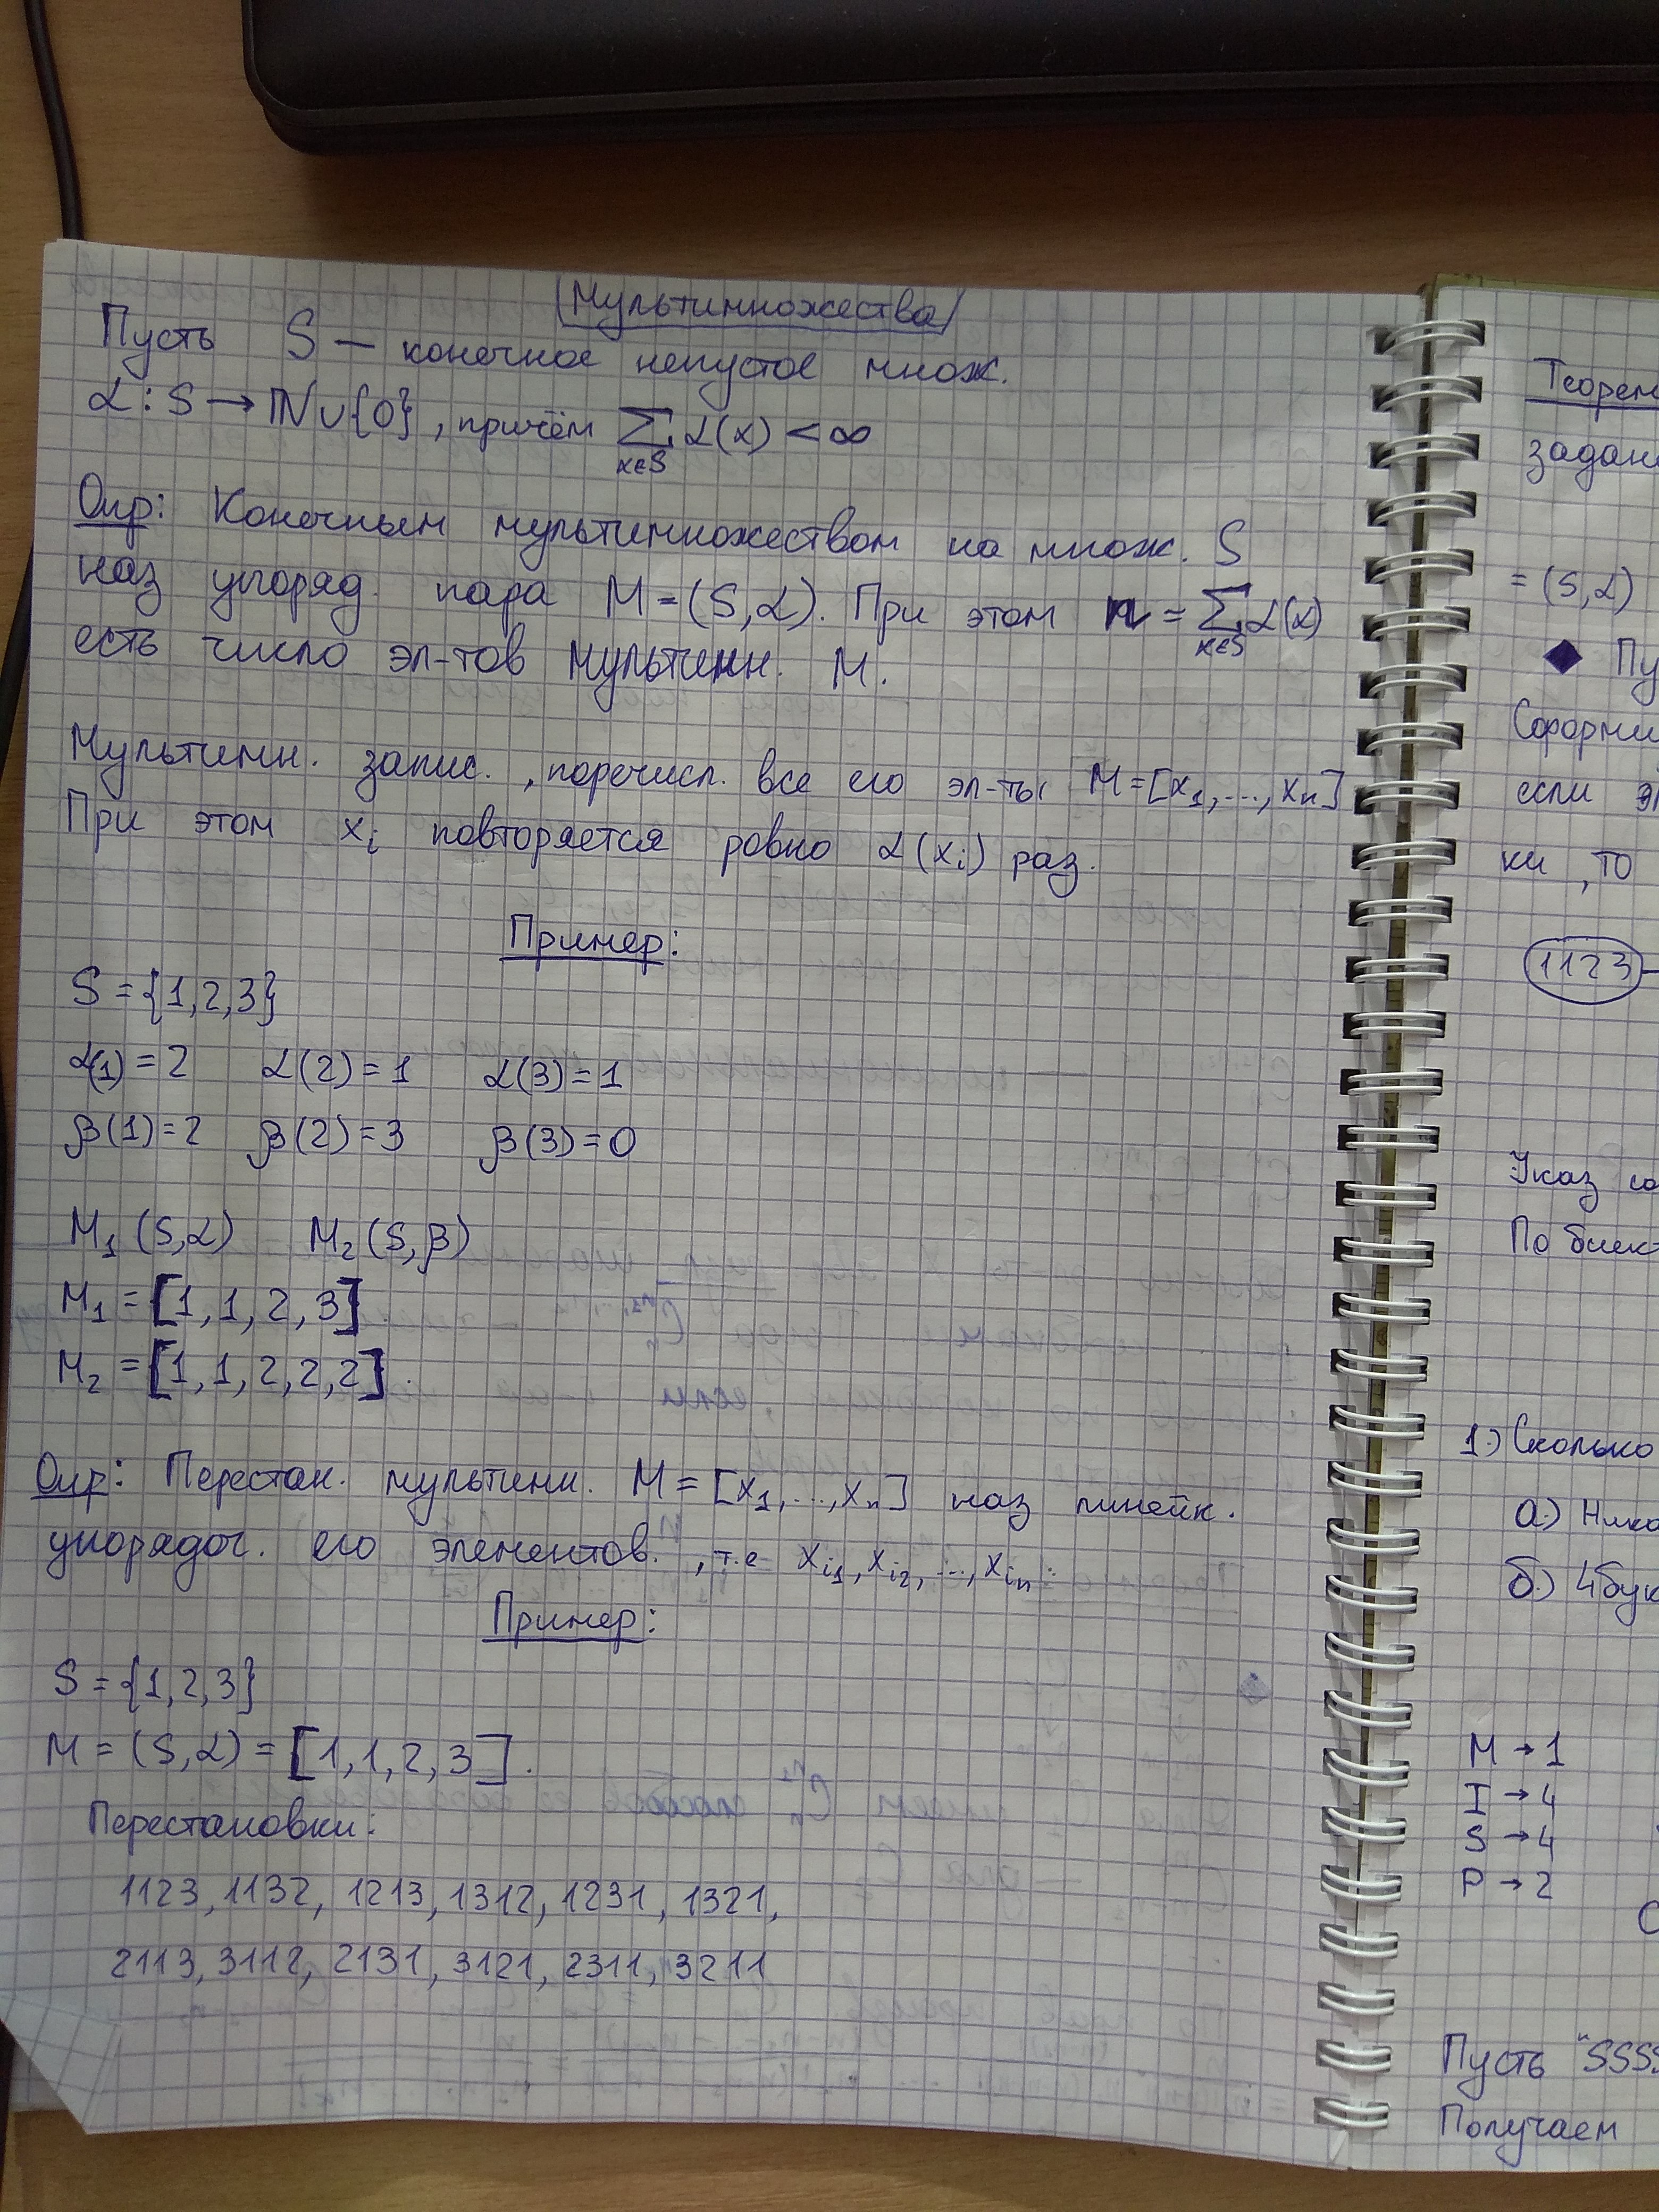 Мультимножества
Пусть S — конечное непустое множ.
α : S → ℕ ∪ {0}, причём ∑ α(x) < ∞
x∈S
Опр: Конечным мультимножеством на множ. S
наз упоряд. пара M = (S, α). При этом n = ∑ α(x)
x∈S
есть число эл-тов мультимн. M.
Мультимн. запис., перечисл. все его эл-ты M = [x₁, ..., xₙ]
При этом xᵢ повторяется ровно α(xᵢ) раз.
Пример:
S = {1, 2, 3}
α(1) = 2 α(2) = 1 α(3) = 1
β(1) = 2 β(2) = 3 β(3) = 0
M₁ (S, α) M₂ (S, β)
M₁ = [1, 1, 2, 3]
M₂ = [1, 1, 2, 2, 2].
Опр: Перестан. мультимн. M = [x₁, ..., xₙ] наз линейн.
упорядоч. его элементов., т.е x_{i₁}, x_{i₂}, ..., x_{iₙ}.
Пример:
S = {1, 2, 3}
M = (S, α) = [1, 1, 2, 3].
Перестановки:
1123, 1132, 1213, 1312, 1231, 1321,
2113, 3112, 2131, 3121, 2311, 3211
Теорем
задан
= (S, α)
◆ Пу
если э
ки, то
1123
Указ со
По биек
1.) Сколько
а.)
б.) 4 бук
M → 1
I → 4
S → 4
P → 2
Пусть "SSSS
Получаем